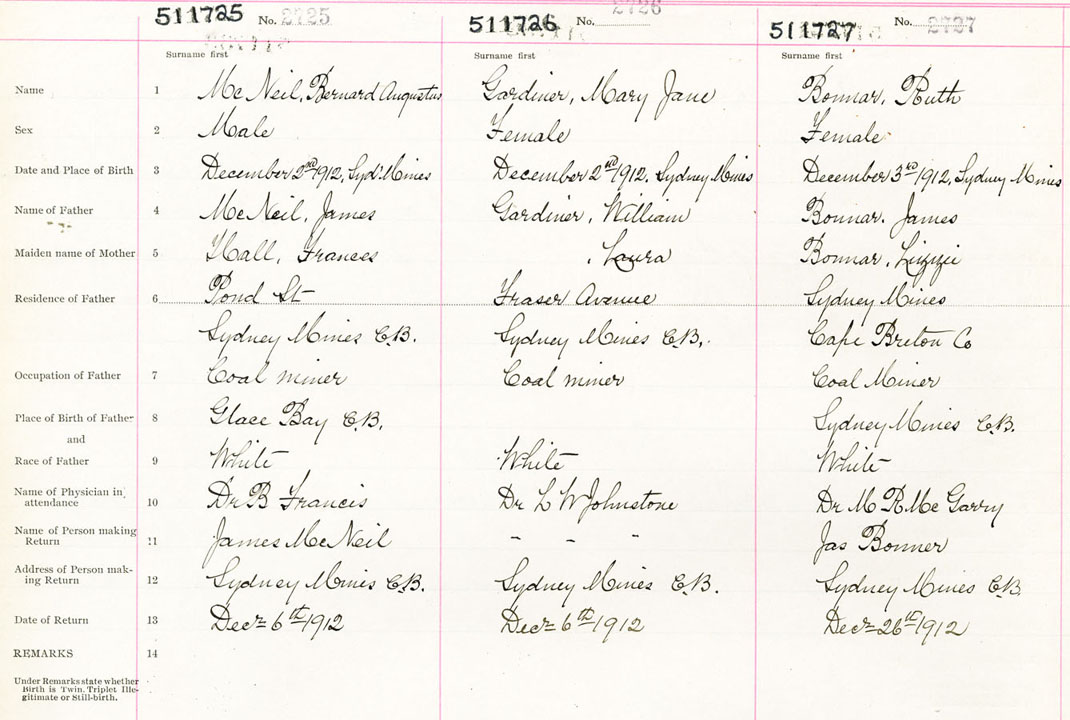 511725 No. 2725 511726 No. 2726 511727 No. 2727
Surname first Surname first Surname first
Name 1 McNeil, Bernard Augustus Gardiner, Mary Jane Bonnar, Ruth
Sex 2 Male Female Female
Date and Place of Birth 3 December 2nd 1912, Syd. Mines December 2nd 1912, Sydney Mines December 3rd 1912, Sydney Mines
Name of Father 4 McNeil, James Gardiner, William Bonnar, James
Maiden name of Mother 5 Hall, Frances , Laura Bonnar, Lizzie
Residence of Father 6 Pond St Fraser Avenue Sydney Mines
Sydney Mines C.B. Sydney Mines C.B. Cape Breton Co
Occupation of Father 7 Coal miner Coal miner Coal Miner
Place of Birth of Father 8 Glace Bay C.B. Sydney Mines C.B.
and
Race of Father 9 White White White
Name of Physician in
attendance 10 Dr B Francis Dr L W Johnstone Dr M R McGarry
Name of Person making
Return 11 James McNeil - - - Jas Bonner
Address of Person mak-
ing Return 12 Sydney Mines C.B. Sydney Mines C.B. Sydney Mines C.B.
Date of Return 13 Decr 6th 1912 Decr 6th 1912 Decr 26th 1912
REMARKS 14
Under Remarks state whether
Birth is Twin, Triplet Ille-
gitimate or Still-birth.